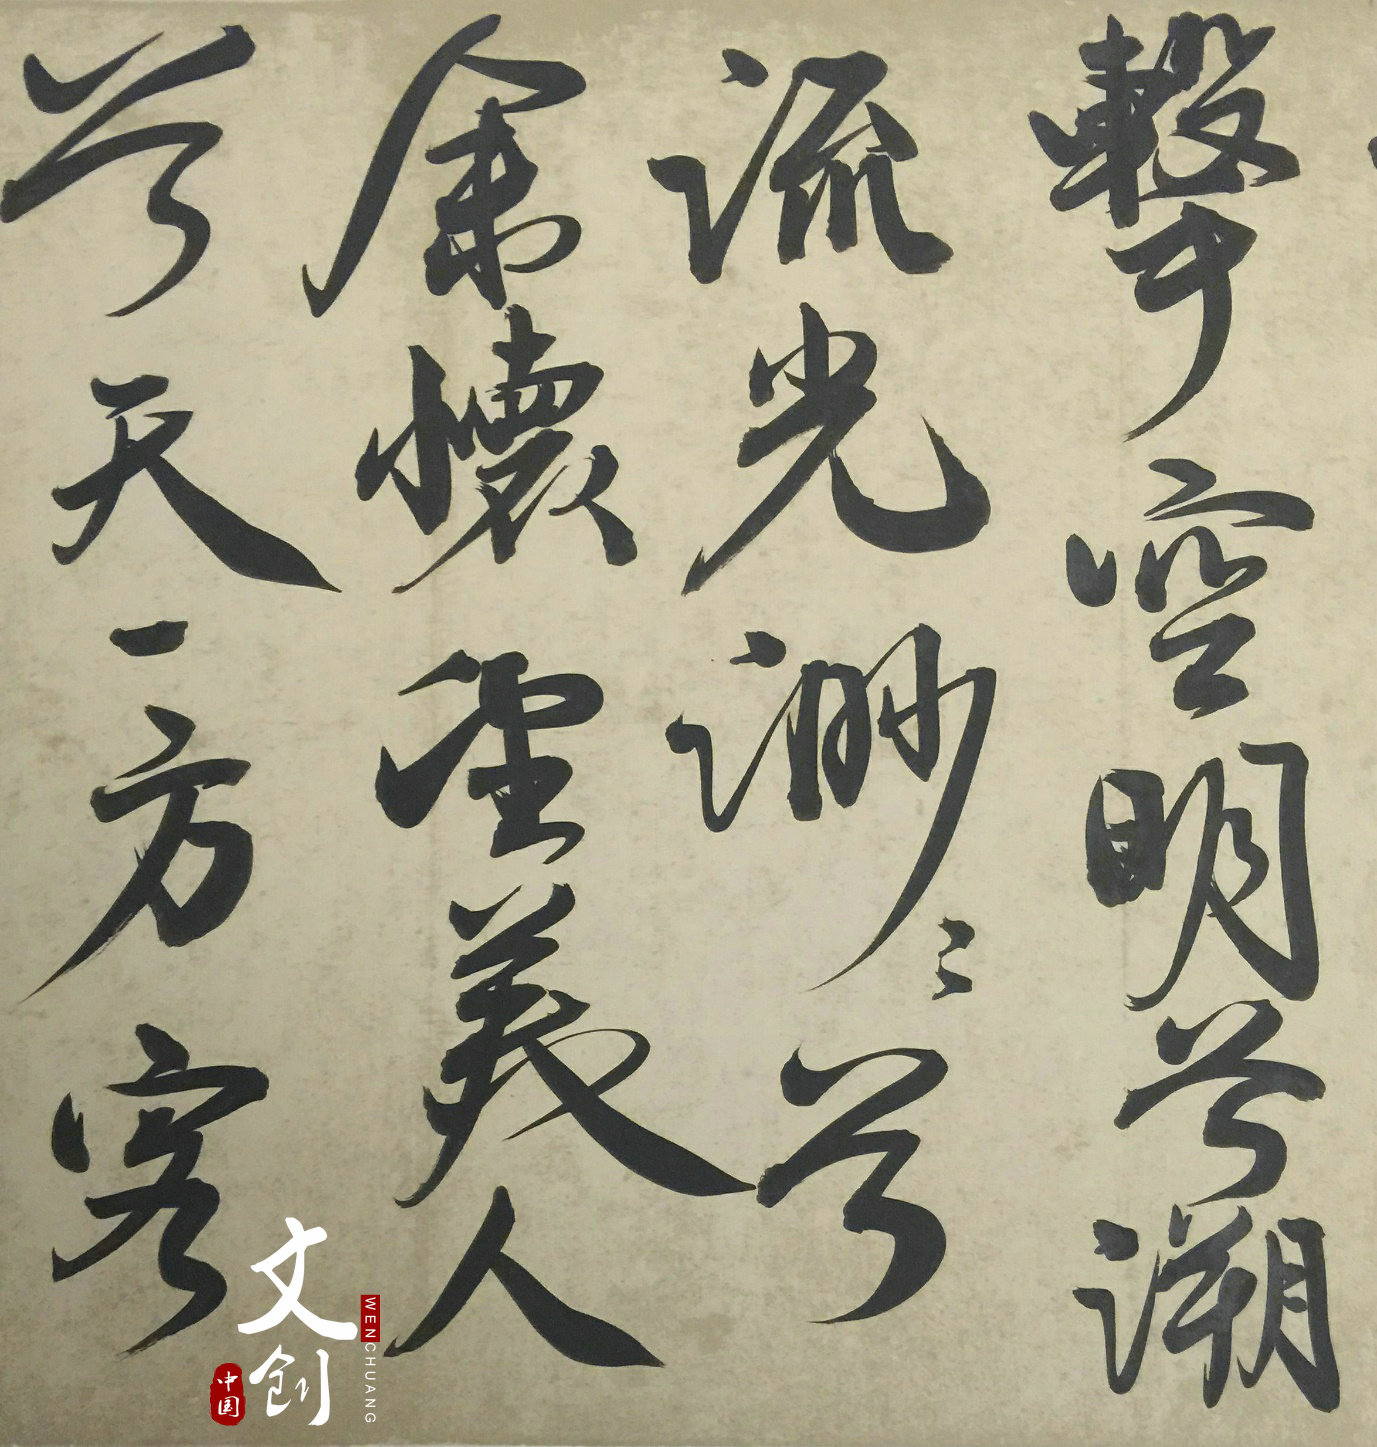 擊空明兮溯
流光渺〻兮
余懷望美人
兮天一方客
文创
中国
WENCHUANG